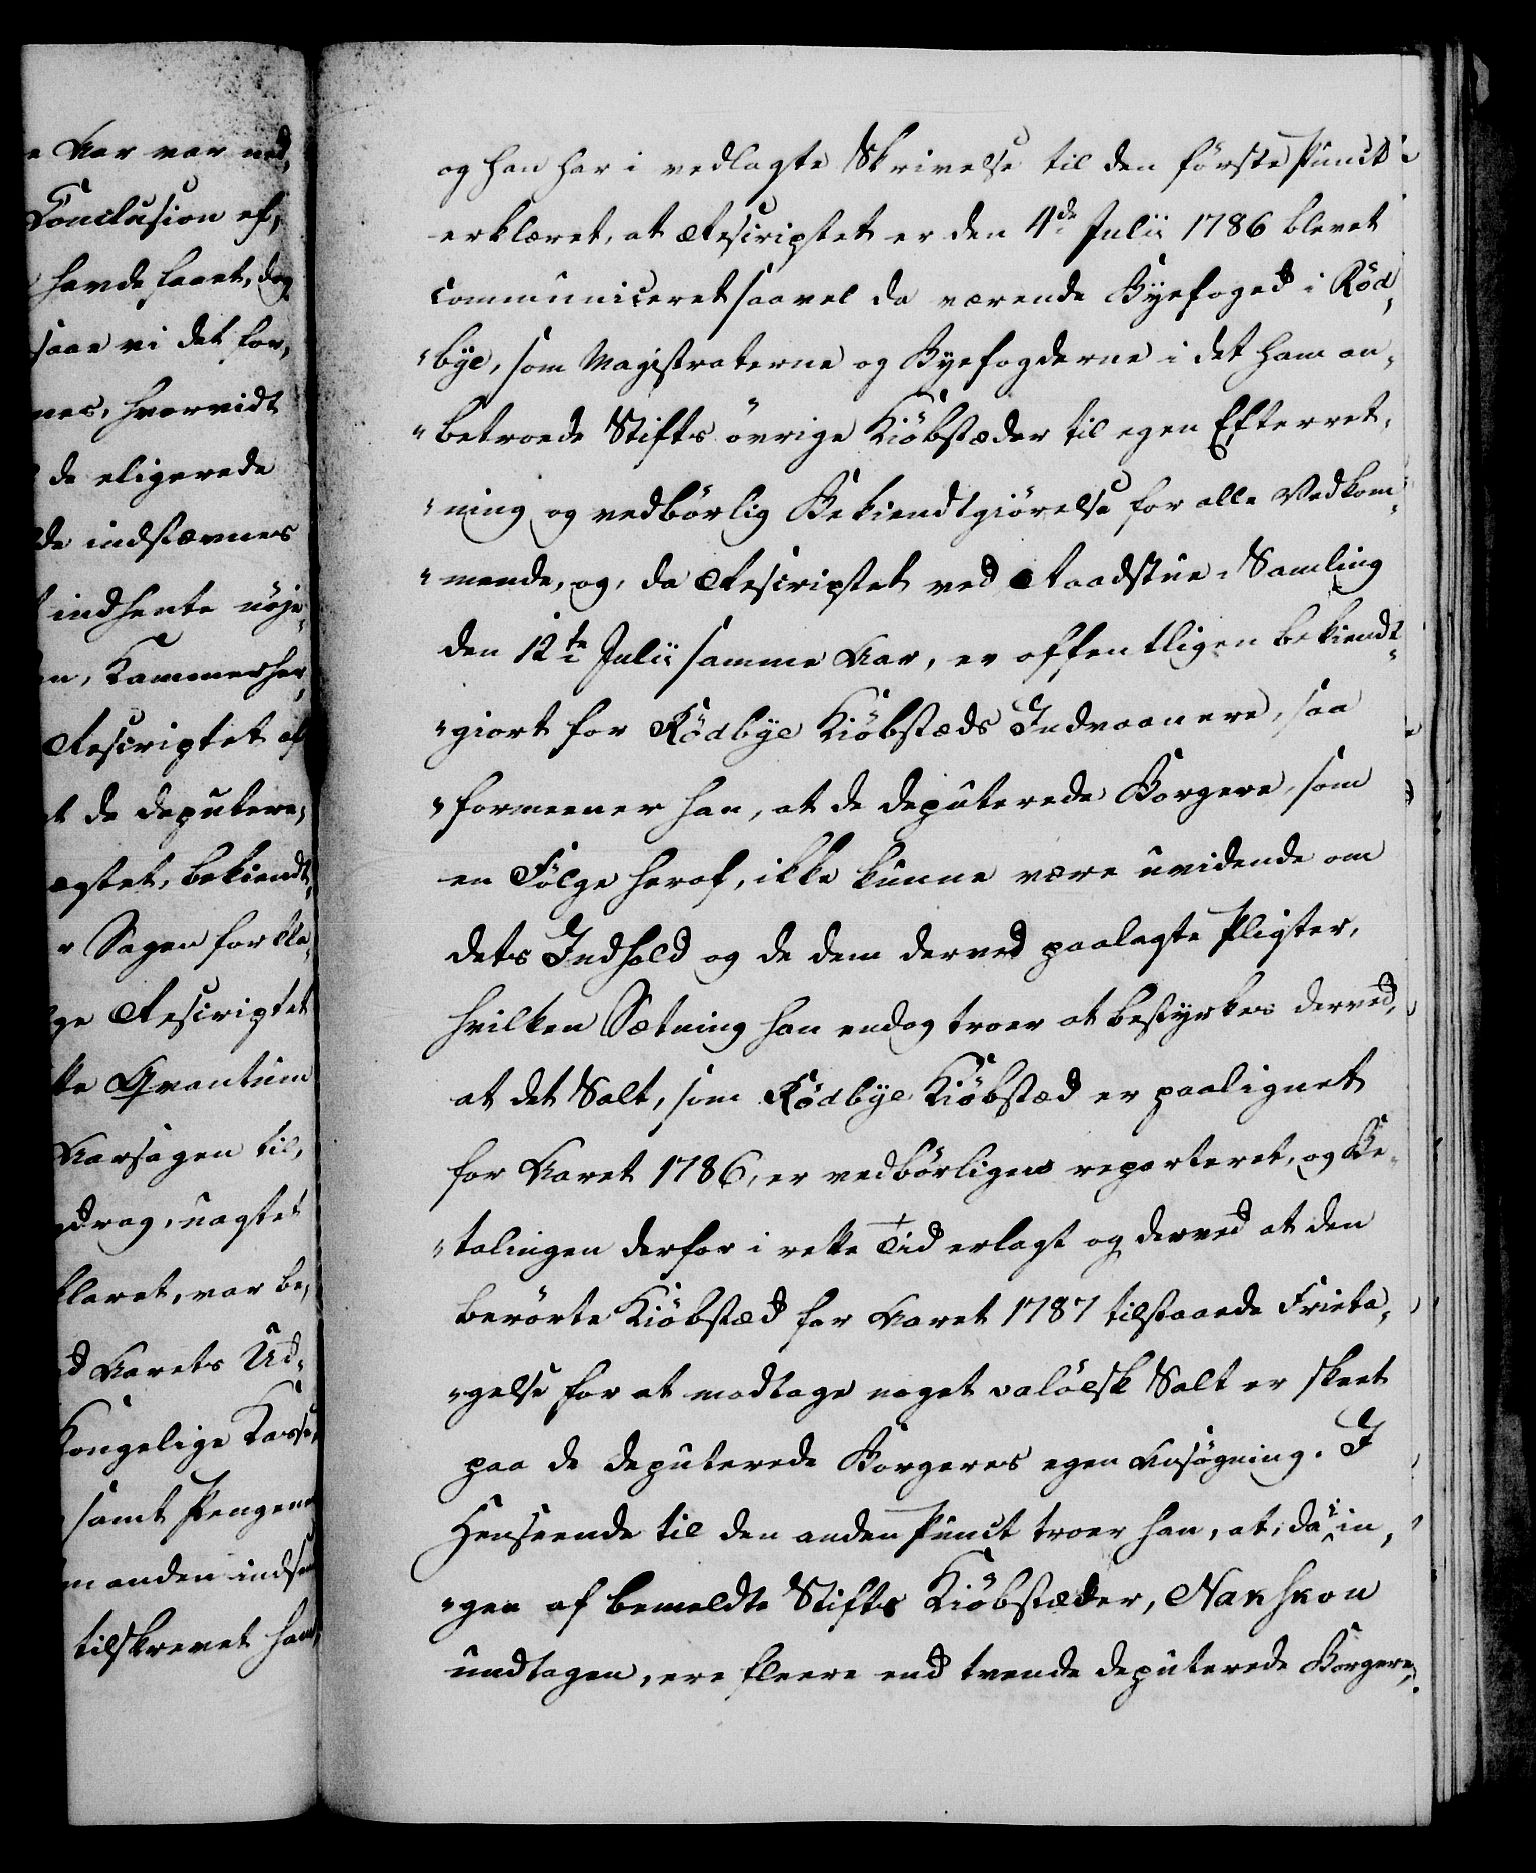 e Aar var ned,
Conclusion ef,
havde faaet, dog
saae vi det for,
nes, hvorvidt
de eligerede
de indstævnes
indhente nöje
n, Kammerher,
Rescriptet af
t de deputere,
egtet, bekiendt,
r Sagen forlle,
ge Rescriptet
ke Qvantum
Aarsagen til,
drog, uagtet
klaret, var be,
d Aarets Ud,
Kongelige Casse,
samt Pengene
m anden indse
tilskrevet ham,
og han har i vedlagte Skrivelse til den förste Punct
erklæret, at Rescriptet er den 4de Julii 1786 blevet
communiceret saavel da værende Byefoged i Röd,
"bye, som Magistraterne og Byefogderne i det ham an,
"betroede Stifts övrige Kiöbstæder til egen Efterret,
"ning og vedbörlig Bekiendtgiörelse for alle Vedkom,
"mende, og, da Rescriptet ved Raadstue-Samling
den 12te Julii samme Aar, er offentligen bekiendt,
"giort for Rödbye Kiöbstæds Indvaanere, saa
"formeener han, at de deputerede Borgere, som
en Fölge heraf, ikke kunne være uvidende om
dets Indhold og de dem derved paalagte Pligter,
hvilken Sætning han endog troer at bestyrkes derved,
at det Salt, som Rödbye Kiöbstæd er paalignet
for Aaret 1786, er vedbörligen reparteret, og Be,
"talingen derfor i rette Tid erlagt og derved at den
berörte Kiöbstæd for Aaret 1787 tilstaaede Frieta,
"gelse for at modtage noget valöesk Salt er skeet
paa de deputerede Borgeres egen Ansögning. I
Henseende til den anden Punct troer han, at, da i in,
"gen af bemeldte Stifts Kiöbstæder, Nakskon
undtagen, ere fleere end tvende deputerede Borgere,